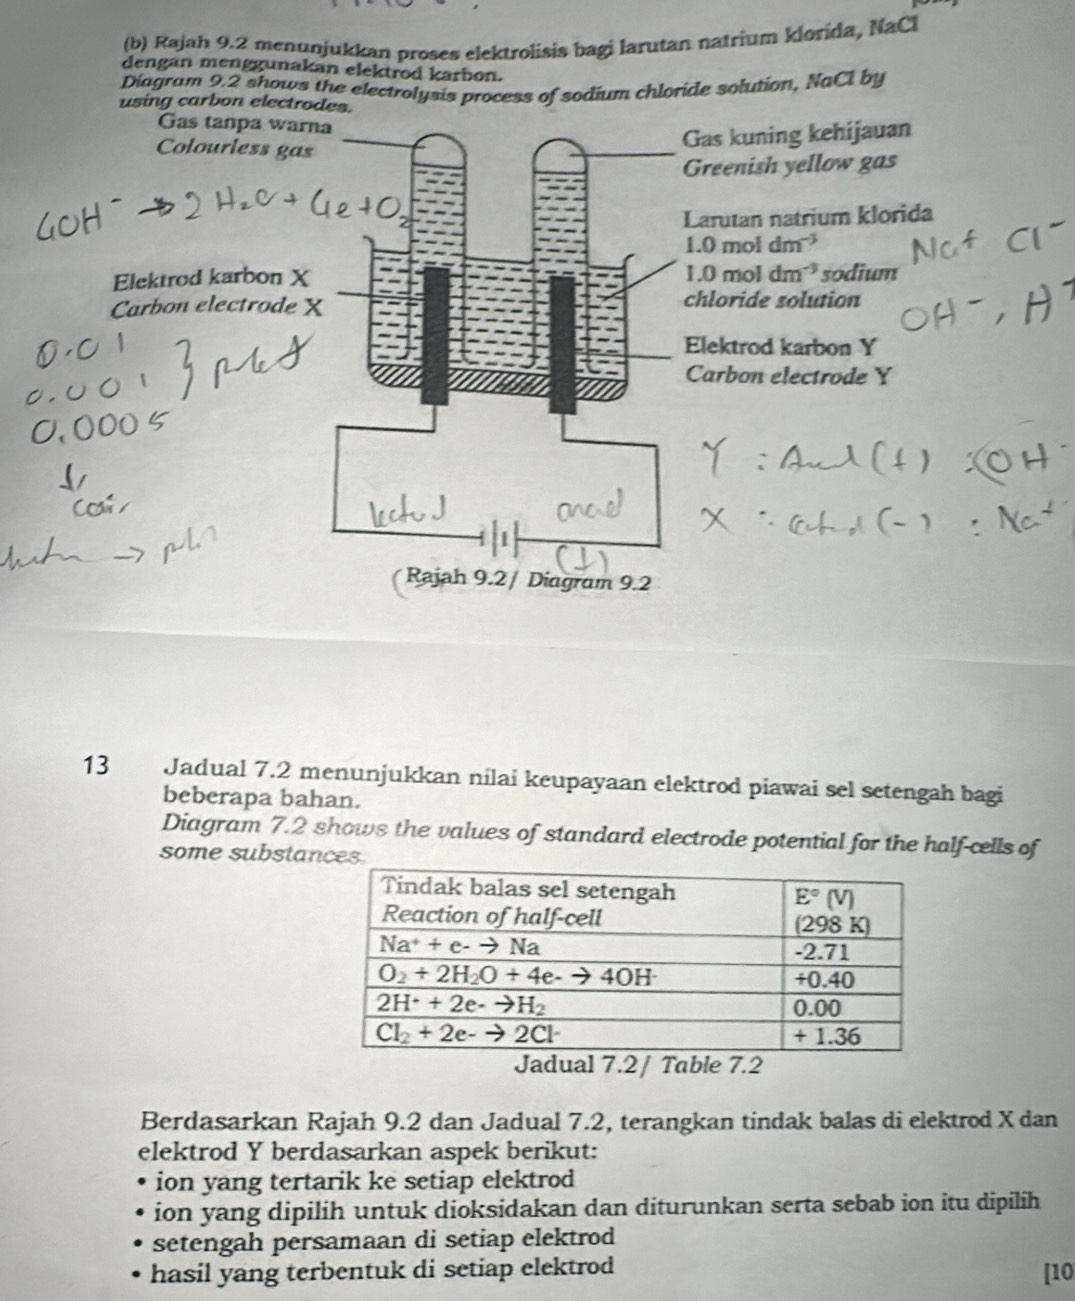 (b) Rajah 9.2 menunjukkan proses elektrolisis bagi larutan natrium klorida, NaCl
dengan menggunakan elektrod karbon.
Diagram 9.2 shows the electrolysis process of sodium chloride solution, NaCl by
using carbon electrodes.
Gas tanpa warna
Colourless gas
Gas kuning kehijauan
Greenish yellow gas
4OH⁻ → 2H₂O + 4e + O₂
Larutan natrium klorida
1.0 mol dm⁻³
1.0 mol dm⁻³ sodium
chloride solution
Na⁺ Cl⁻
OH⁻, H⁺
Elektrod karbon X
Carbon electrode X
Elektrod karbon Y
Carbon electrode Y
0.01
0.001
0.0005
Y : (+) : OH⁻
X : (-) : Na⁺
(+)
Rajah 9.2/ Diagram 9.2
13 Jadual 7.2 menunjukkan nilai keupayaan elektrod piawai sel setengah bagi
beberapa bahan.
Diagram 7.2 shows the values of standard electrode potential for the half-cells of
some substances.
Tindak balas sel setengah E° (V)
Reaction of half-cell (298 K)
Na⁺ + e- → Na -2.71
O₂ + 2H₂O + 4e- → 4OH- +0.40
2H⁺ + 2e- →H₂ 0.00
Cl₂ + 2e- → 2Cl- + 1.36
Jadual 7.2/ Table 7.2
Berdasarkan Rajah 9.2 dan Jadual 7.2, terangkan tindak balas di elektrod X dan
elektrod Y berdasarkan aspek berikut:
• ion yang tertarik ke setiap elektrod
• ion yang dipilih untuk dioksidakan dan diturunkan serta sebab ion itu dipilih
• setengah persamaan di setiap elektrod
• hasil yang terbentuk di setiap elektrod
[10